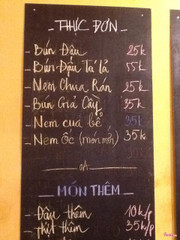 THỰC ĐƠN
- Bún Đậu 25k
- Bún Đậu Tá lả 55k
- Nem Chua Rán 25k
- Bún Giả Cầy 35k
- Nem cua bể 35k
- Nem ốc (món mới) 35k
MÓN THÊM
- Đậu thêm 10k/p
- Thịt thêm 35k/p